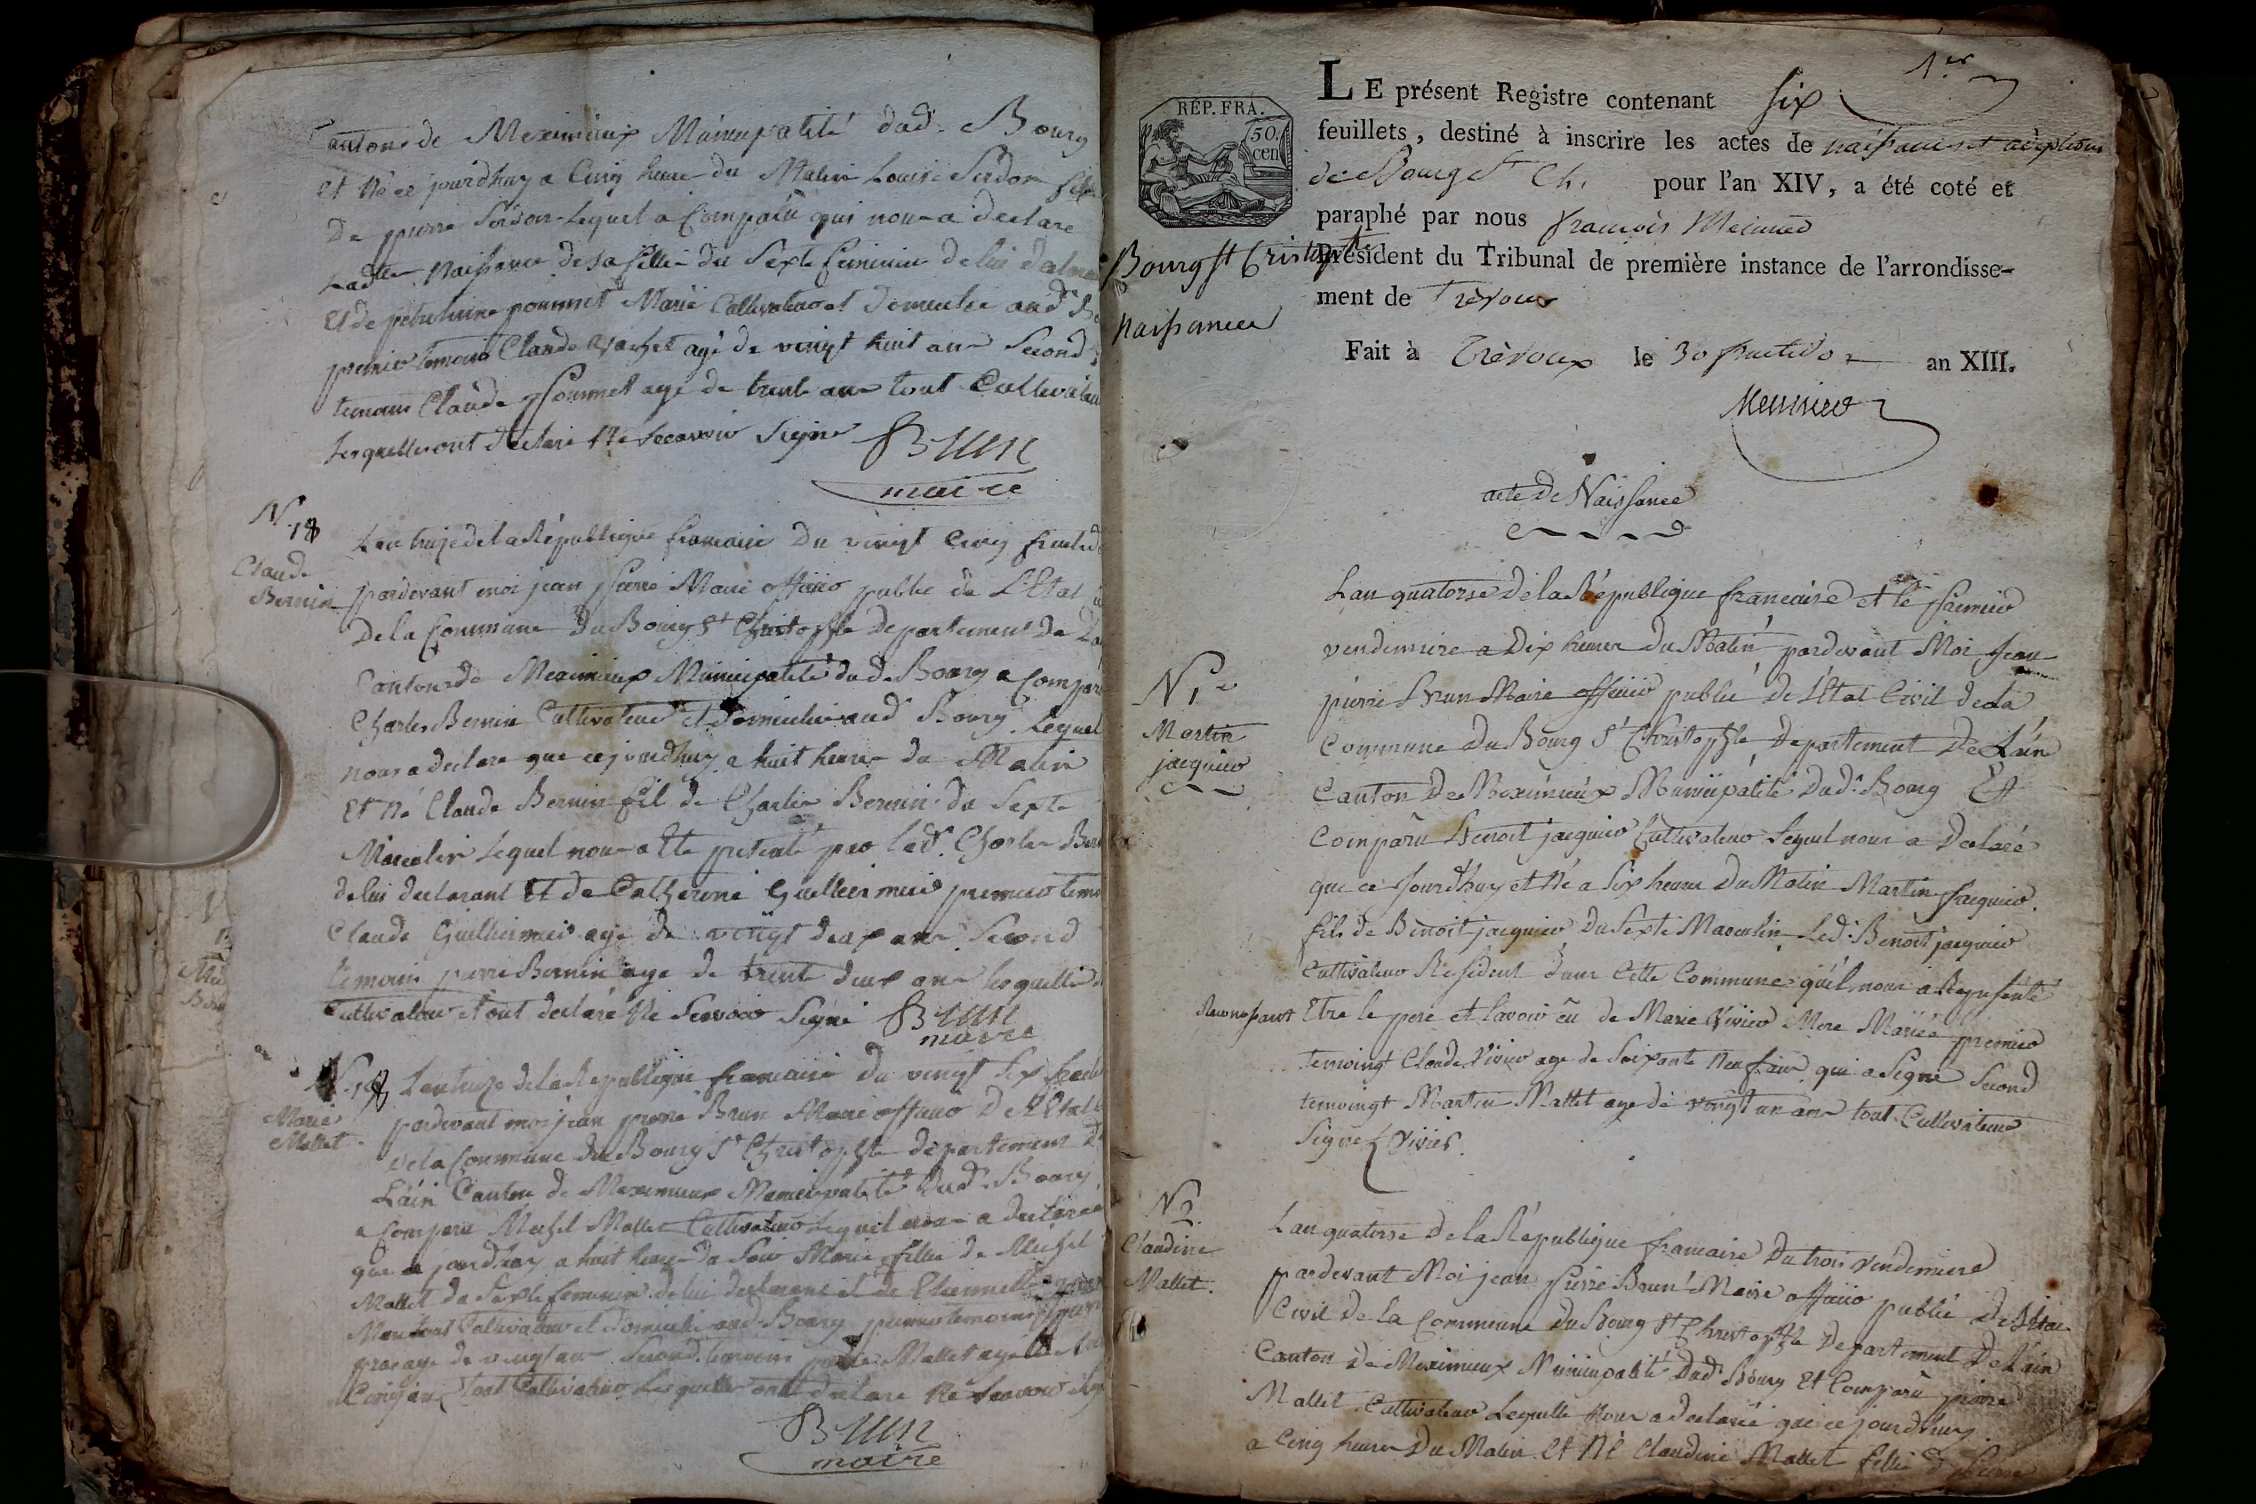 Canton de Meximieux Municipalité dud. Bourg
et Né ce jourdhuy a Cinq heure du Matin Louise Serdon fille
De pierre Serdon Lequel a Comparu qui nous a declare
Ladtte Naissance de sa fille du Sexte feminin de lui
Et de poumet Marié Cultivateur et domicilie aud
premier temoins Claude Vachet agé de vingt huit ans Second
temoins Claude Poummet age de trente ans tout Cultivateur
Lesquelles ont declare Ne Scavoir Signe
Brun
maire
N 18
Claude
Bernin
Lan treize de la République francaise Du vingt Cinq fructido
pardevant moi jean pierre Maire officier public de L'Etat
De la Commune Du Bourg St Christophle Departement De
Canton de Meximieux Municipalité dud Bourg a Compar
Charles Bernin Cultivateur et domicilie aud Bourg Lequel
nous a declare que ce jourdhuy a huit heure du Matin
Et Né Claude Bernin fil de Charle Bernin du Sexte
Masculin Lequel nous a Ete présenté par led. Charle Ber
de lui declarant Et de Catherine Guillermier premier temo
Claude Guillermier age de vingt deux ans Second
temoin pierre Bernin age de trente deux ans lesquelle
Cultivateur et ont declaré Ne Scavoir Signe Brun
maire
N. 18
Marie
Mallet
Lan treize de la Republique francaise du vingt Six fructi
pardevant moi jean pierre Brun Maire officier De L'Etat
De la Commune du Bourg St Christophle departement De
L'ain Canton de Meximieux Municipalité dud. Bourg
a Comparu Michel Mallet Cultivateur Lequel nous a declaré
que ce jourdhuy a huit heure du Soir Marie fille de Michel
Mallet du Sexte feminin de lui declarant et de Etiennette
Cultivateur et domicilie aud Bourg premier temoins pierre
age de vingt ans Second temoins Mallet age de
Cinq ans tout Cultivateur Lesquelle ont declare Ne Scavoir Sign
Brun
maire
1er
RÉP. FRA.
50.
cen
LE présent Registre contenant six
feuillets, destiné à inscrire les actes de naissances et adoptions
de Bourg St Ch. pour l'an XIV, a été coté et
paraphé par nous francois Meunier
Président du Tribunal de première instance de l'arrondisse-
ment de Trévoux
Bourg St Cristophe
Naissances
Fait à Trévoux le 30 fructidor an XIII.
Meunier
acte De Naissance
N 1er
Martin
jacquier
Lan quatorse De la République francaise et le premier
vendemiere a Dix heures Du Matin pardevant Moi Jean
pierre Brun Maire officier public de L'Etat Civil de la
Commune Du Bourg St Christophle Departement De L'ain
Canton De Meximieux Municipalité Dud. Bourg Est
Comparu Benoit jacquier Cultivateur Lequel nous a Declaré
que ce Jourdhuy et Né a Six heures Du Matin Martin Jacquier
fils de Benoit jacquier Du Sexte Masculin Led. Benoit jacquier
Cultivateur Résident dans Cette Commune quil nous a Représenté
Reconnossant Etre le pere et Lavoir eu de Marie Vivier Mere Mariée premier
temoingt Claude Vivier age de Soixante Neuf ans qui a Signe Second
temoingt Martin Mallet age de vingt un ans tout Cultivateur
Signe Vivier.
N 2.
Claudine
Mallet.
Lan quatorse De la République francaise Du trois Vendemiere
pardevant Moi jean pierre Brun Maire officier public De L'Etat
Civil De la Commune Du Bourg St Christophle Departement De L'ain
Canton De Meximieux Municipalité Dud. Bourg Et Comparu pierre
Mallet Cultivateur Lequelle Nous a declaré que ce jourdhuy
a Cinq heures Du Matin Et Né Claudine Mallet fille De pierre